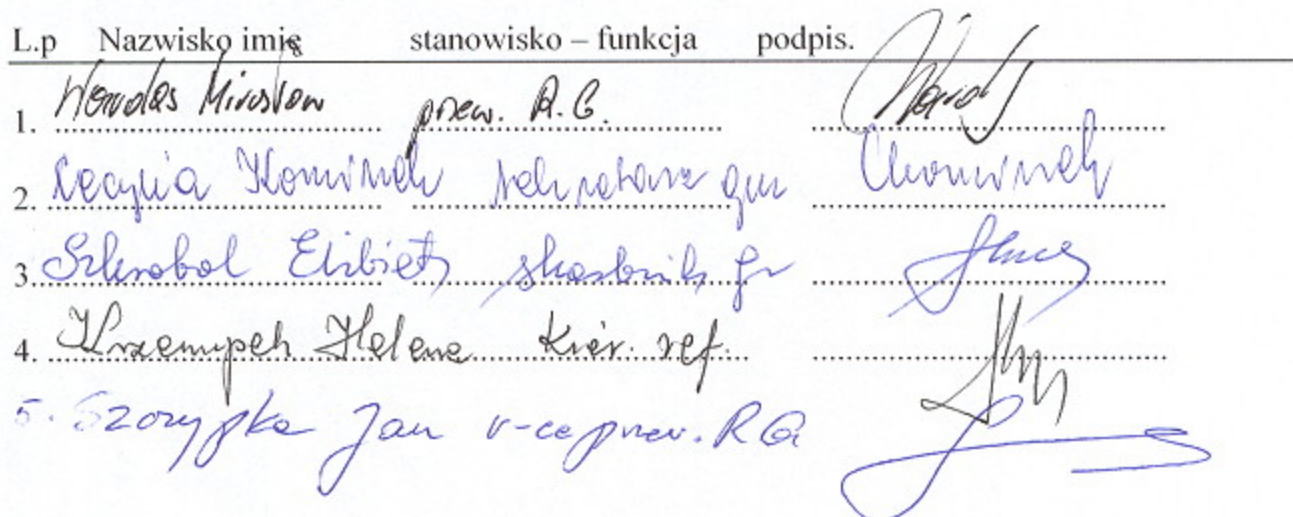 L.p Nazwisko imię stanowisko – funkcja podpis.
1. Mirosław przew. R.G.
2. Kominek sekretarz gm
3. Szkrobol Elżbieta skarbnik gm
4. Krzempek Helena Kier. ref.
5. Szczypka Jan v-ce przew. RG